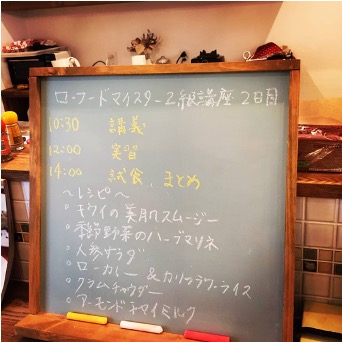 ローフードマイスター2級講座 2日目
10:30 講義
12:00 実習
14:00 試食、まとめ
〜レシピ〜
・キウイの美肌スムージー
・季節野菜のハーブマリネ
・人参サラダ
・ローカレー & カリフラワーライス
・クラムチャウダー
・アーモンドチャイミルク